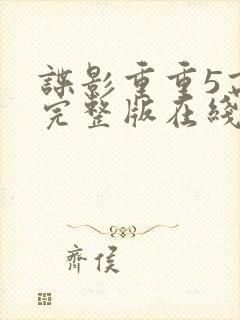 諜影重重5高
完整版在綫
齊侯